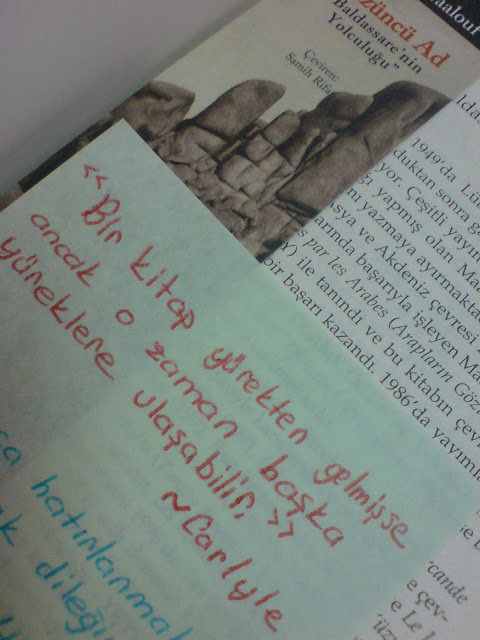 aalouf
züncü Ad
Baldassare'nin
Yolculuğu"
Çeviren:
Samih Rifa
1949'da Lü
duktan sonra g
yor. Çeşitli yayın
ğı yapmış olan Maa
nı yazmaya ayırmakta
sya ve Akdeniz çevresi
arında başarıyla işleyen Ma
s par les Arabes (Arapların Gözü
) ile tanındı ve bu kitabın çev
bir başarı kazandı. 1986'da yayıml
<<Bir kitap yürekten gelmişse
ancak o zaman başka
yüreklere ulaşabilir.>>
~Carlyle
ça hatırlanmal
ak dileği
cande
e çev-
e Le